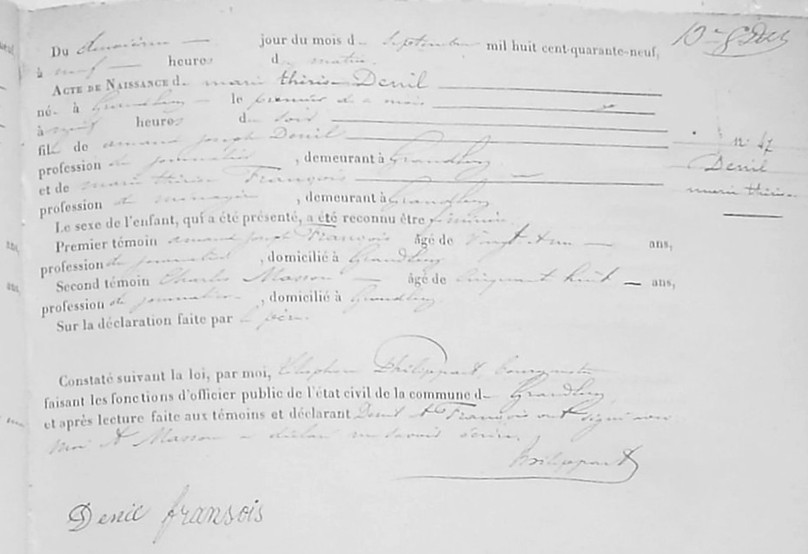 Du deuxième jour du mois de Septembre mil huit cent quarante-neuf,
à neuf heures du matin.
ACTE DE NAISSANCE de marie thérèse Denil
née à Grandleez le premier du mois
à neuf heures du soir
fille de amand joseph Denil
profession de journalier, demeurant à Grandleez
et de marie thérèse François
profession de ménagère, demeurant à Grandleez
Le sexe de l'enfant, qui a été présenté, a été reconnu être féminin.
Premier témoin amand joseph François âgé de vingt ans,
profession de journalier, domicilié à Grandleez
Second témoin Charles Masson âgé de cinquante huit ans,
profession de journalier, domicilié à Grandleez
Sur la déclaration faite par le père.
Constaté suivant la loi, par moi, Philippart bourgmestre
faisant les fonctions d'officier public de l'état civil de la commune de Grandleez
et après lecture faite aux témoins et déclarant Denil et François ont signé avec
moi et Masson a déclaré ne savoir écrire.
Philippart
Denil fransois
n° 47
Denil
marie thérèse